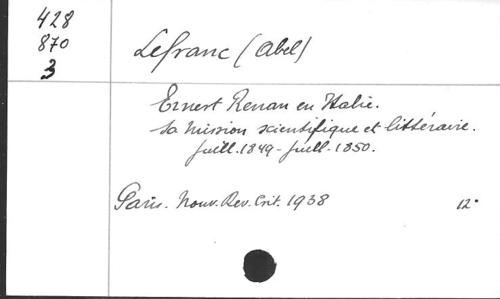 428
870
3
Lefranc (Abel)
Ernest Renan en Italie.
Sa mission scientifique et littéraire.
Juill. 1849 - Juill. 1850.
Paris. Nouv. Rev. Crit. 1938 12°